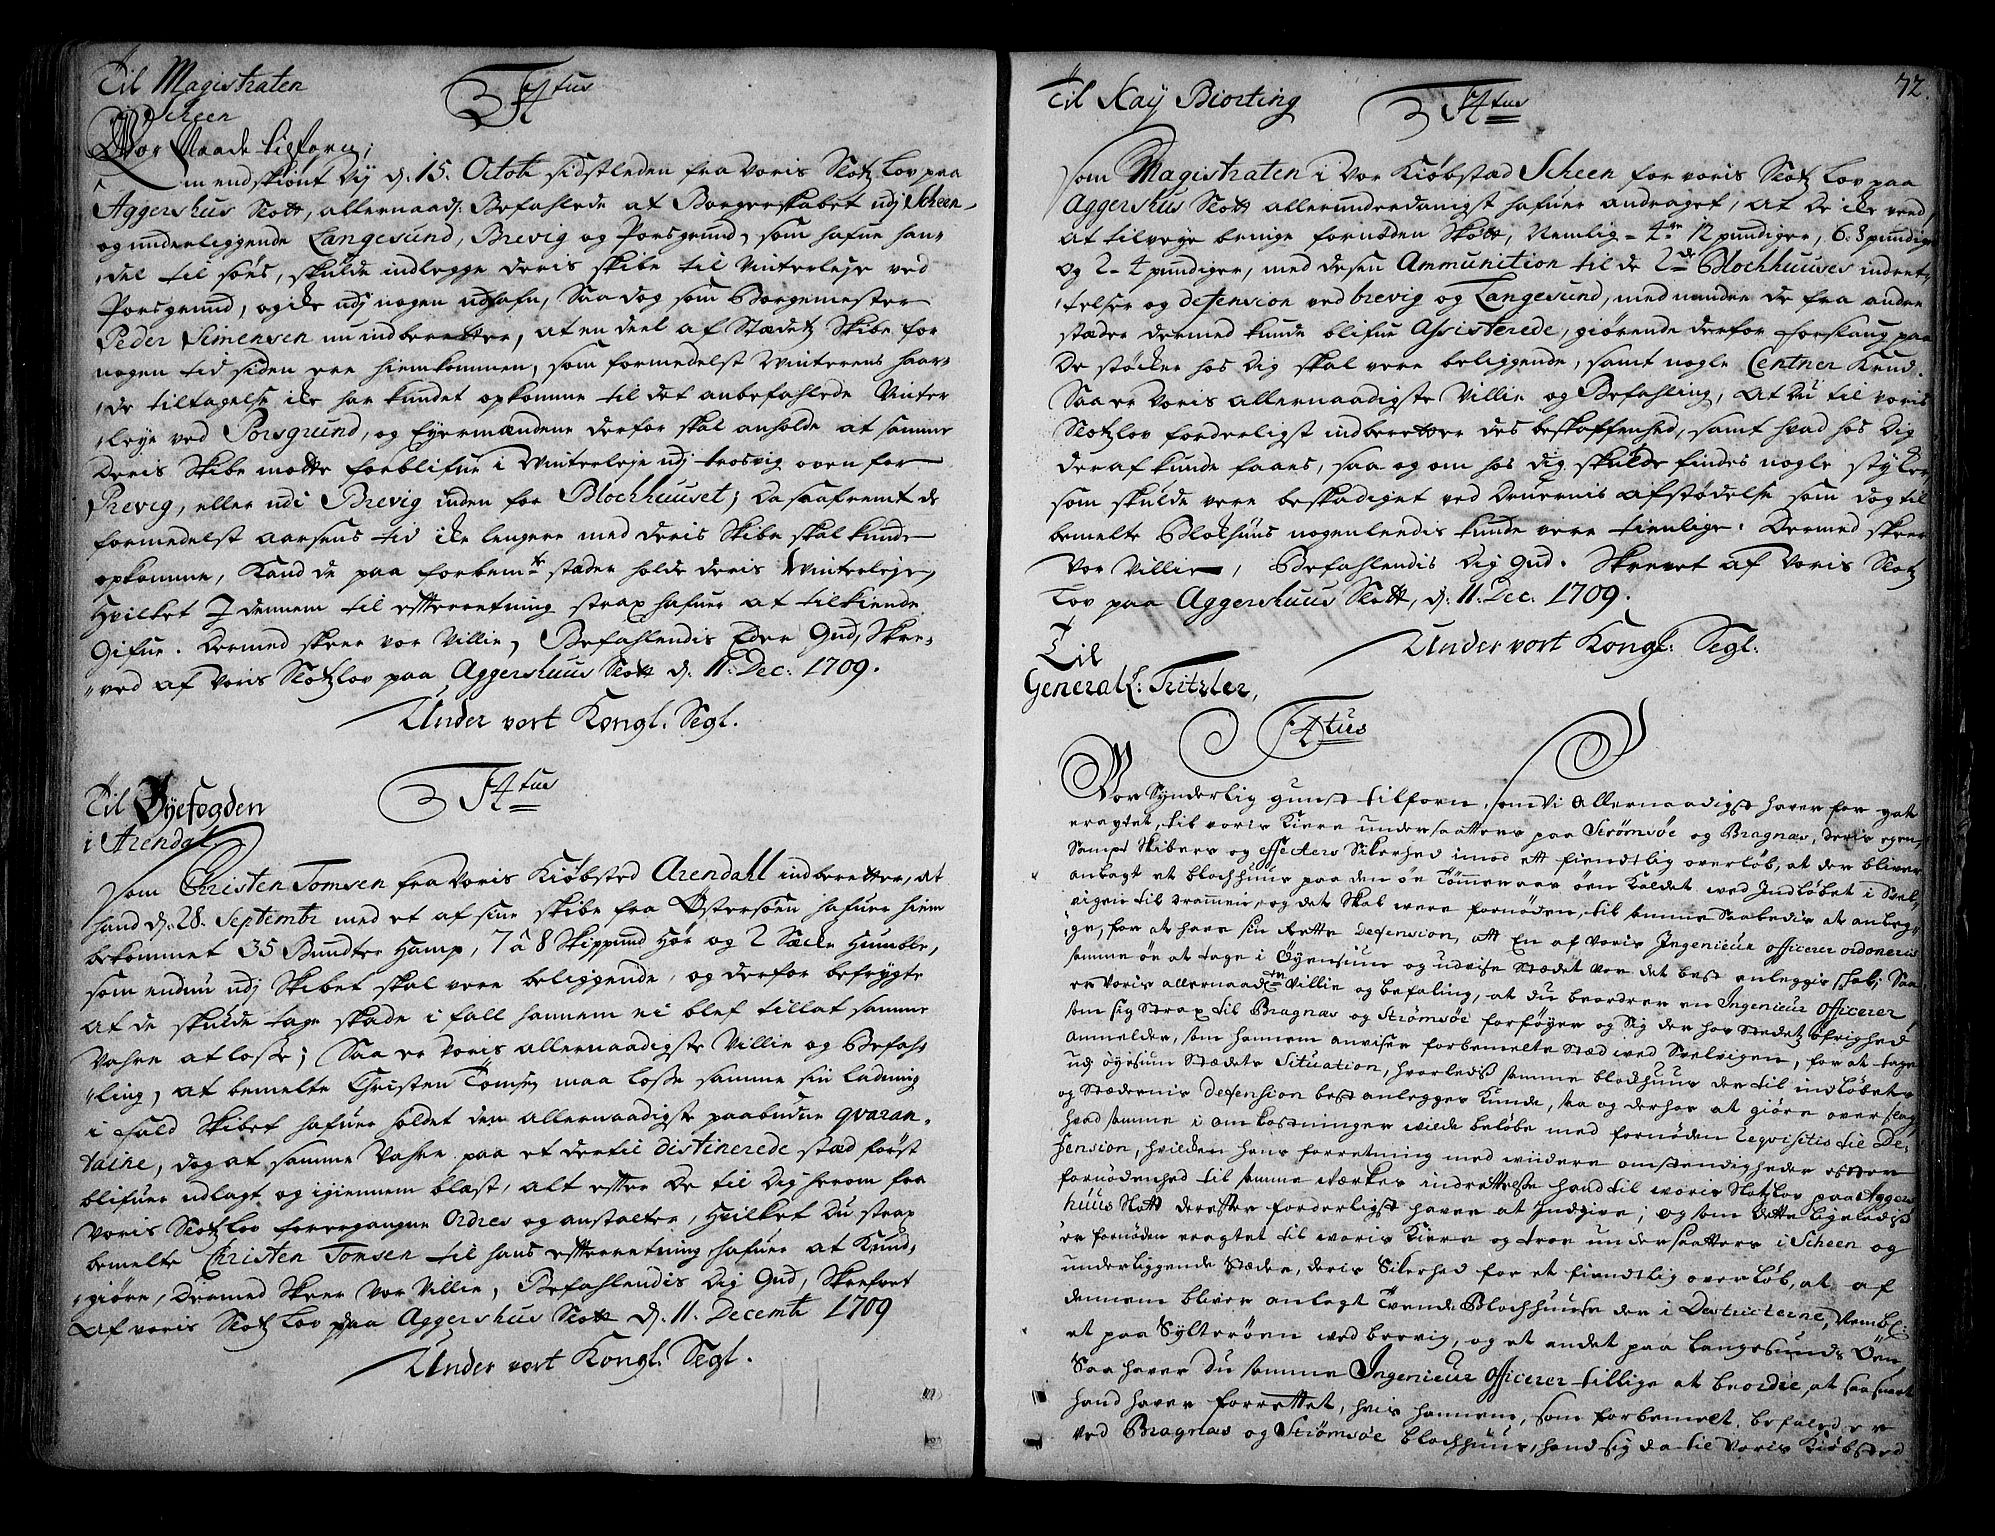 Til Magistraten
i Scheen
F4tus
Vor Naade tilforn;
Om endskiønt Vij d: 15. Octob: sidstleden fra Voris Slotz Lov paa
Aggershus Slott, allernaad: Befahlede at Borgerskabet udj Scheen
og underliggende Langesund, Brevig og Porsgrund, som hafue han-
del til søes, skulde indlegge deris skibe til Vinterleje ved
Porsgrund, og icke udj nogen udhafn, Saa dog som Borgemester
Peder Simensen nu indberetter, at en deel af Stædetz Skibe for
nogen tid siden ere hiemkommen, som formedelst Winterens haar-
de tiltagelse icke har kundet opkomme til det anbefahlede Vinter
leye ved Porsgrund, og Eyermændene derfor skal anholde at samme
deris Skibe motte forblifue i Winterleje udj trosvig oven for
Brevig, eller udi Brevig inden for Blochhuuset; Da saafremt de
formedelst aarsens tid icke lengere med deris Skibe skal kunde
opkomme, Kand de paa forbemte steder holde deris Winterleje,
Hvilket I dennem til efterretning strax hafuer at tilkiende
Gifue. Dermed skeer vor Villie, Befahlendis Eder Gud, Skre-
ved af Voris Slotzlov paa Aggershuus Slott d. 11. Dec: 1709.
Under vort Kongl. Segl.
Til Byefogden
i Arendal
F4tus
Som Christen Tomsen fra Voris Kiøbsted Arendahl indberetter, at
hand d. 28. Septembr med et af sine skibe fra Østersøen hafuer hiem
bekommet 35 Bundter Hamp, 7 à 8 Skippund Hør og 2 Sæcke Humble,
som endnu udj Skibet skal vere beliggende, og derfor befrygte
at de skulde tage skade i fall hannem ei blef tillat samme
Vahre at losse; Saa er Voris allernaadigste Villie og Befah-
ling, at bemelte Christen Tomsen maa losse samme sin ladning
i fald Skibet hafuer holdet den allernaadigste paabudne qvaran-
taine, dog at samme Vahre paa et dertil distinerede stæd først
blifuer udlagt og igiennem blæst, alt efter de til Dig herom fra
Voris Slotz Lov forergangne Ordres og anstalter, Hvilket Du strax
bemelte Christen Tomsen til hans efterretning hafuer at Kund-
giøre, Dermed Skeer Vor Villie, Befahlendis Dig Gud, Skrefvet
af voris Slotz Lov paa Aggershus Slott d. 11. Decembr 1709
Under vort Kongl. Segl.
72.
Til Kaÿ Biorting
F4tus
Som Magistraten i Vor Kiøbstad Scheen for voris Slotz Lov paa
Aggershus Slott allerunderdanigst hafuer andraget, at de icke veed
at tilveye bringe fornøden Skøtz, Nemlig 4re 12 pundiger, 6. 8 pundige
og 2- 4 pundiger, med desen Ammunition til de 2de Blochhuuses indret-
telse og defension ved brevig og Langesund, med minder de fra andre
stæder dermed kunde blifue Assisterede, giørende derfor forslaug paa
De støcker hos Dig skal vere beliggende, samt nogle Centner Krud.
Saa er Voris allernaadigste Villie og Befahling, at Du til voris
Slotzlov forderligst indberetter des beskaffenhed, samt hvad hos Dig
deraf kunde faaes, saa og om hos dig skulde findes nogle stycker
som skulde vere beskadiget ved afstødelse som dog til
bemelte Blokhuus nogenlendis kunde vere tienlige. Dermed skeer
Vor Villie, Befahlendis Dig Gud. Skrevet af Voris Slotz
Lov paa Aggershuus Slott, d. 11. Dec. 1709.
Under vort Kongl: Segl.
Til
General L: Tritzler,
F4tus
Vor Synderlig gunst tilforn, som Vi Allernaadigst haver for got
eragtet, til voris Kiere undersaatters paa Strømsøe og Bragnæs, deris egen,
Sampt Skibers og effecters Sikerhed imod ett fiendtlig overløb, at der bliver
anlagt et blochhuus paa den øe Tømmeraas øen kaldet ved Indløbet i Svel-
vigen til Drammen, og det skal were fornøden, til samme Saaledis at anleg-
ge, for at have sin Rette defension, att En af Voris Ingenieur officerer ordoneris
samme øe at tage i Øyensiun og udvise Stædet vor det best anleggis skal; Saa
er Voris allernaadte Villie og befaling, at du beordrer en Ingenieur Officerer
som sig Strax til Bragnæs og Strømsøe forføyer og Sig der hos Stedetz øfrighed
anmelder, som hannem anviser forbemelte Stæd wed Svelvigen, for at tage
udj øyesiun Stædets Situation, hvorledis samme blochhuus der til indløbets
og Stædernis Defension best anlegges kunde, saa og derhos at giøre overslag
hvad samme i omkostninger wilde beløbe med fornøden Reqvisitis til De-
fension, hvilcken hans forretning med widere omstendigheder efter
fornødenhed til samme Værkes indrettelse hand til woris Slotzlov paa Agger-
huus Slott derefter forderligst haver at Indgive; og som dette ligeledis
er fornøden eragtet til woris Kiere og troe undersaatters i Scheen og
underliggende Stæder, deris Sikerhed for et fiendtlig overløb, at af
dennem bliver anlagt Tvende Blochhuuse der i Destricterne, Nembl:
et paa Sylterøen ved brevig, og et andet paa Langesunds Øen,
Saa haver Du samme Ingenieur Officerer tillige at beordre, at saasnart
hand haver forrettet, hvis hannem, som forbemelt, befaled er
ved Bragnæs og Strømsøe blochhuus, hand sig da til Voris Kiøbsted